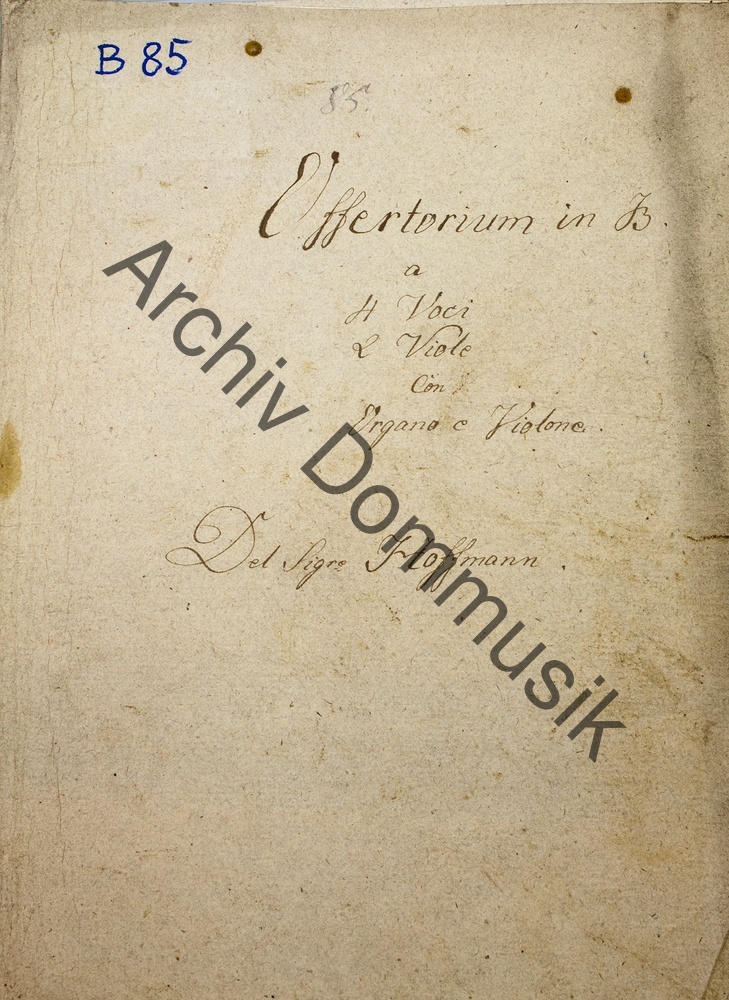 B 85
85.
Offertorium in B.
a
4 Voci
2 Viole
Con
Organo e Violone.
Del Sigre Hoffmann.
Archiv Dommusik